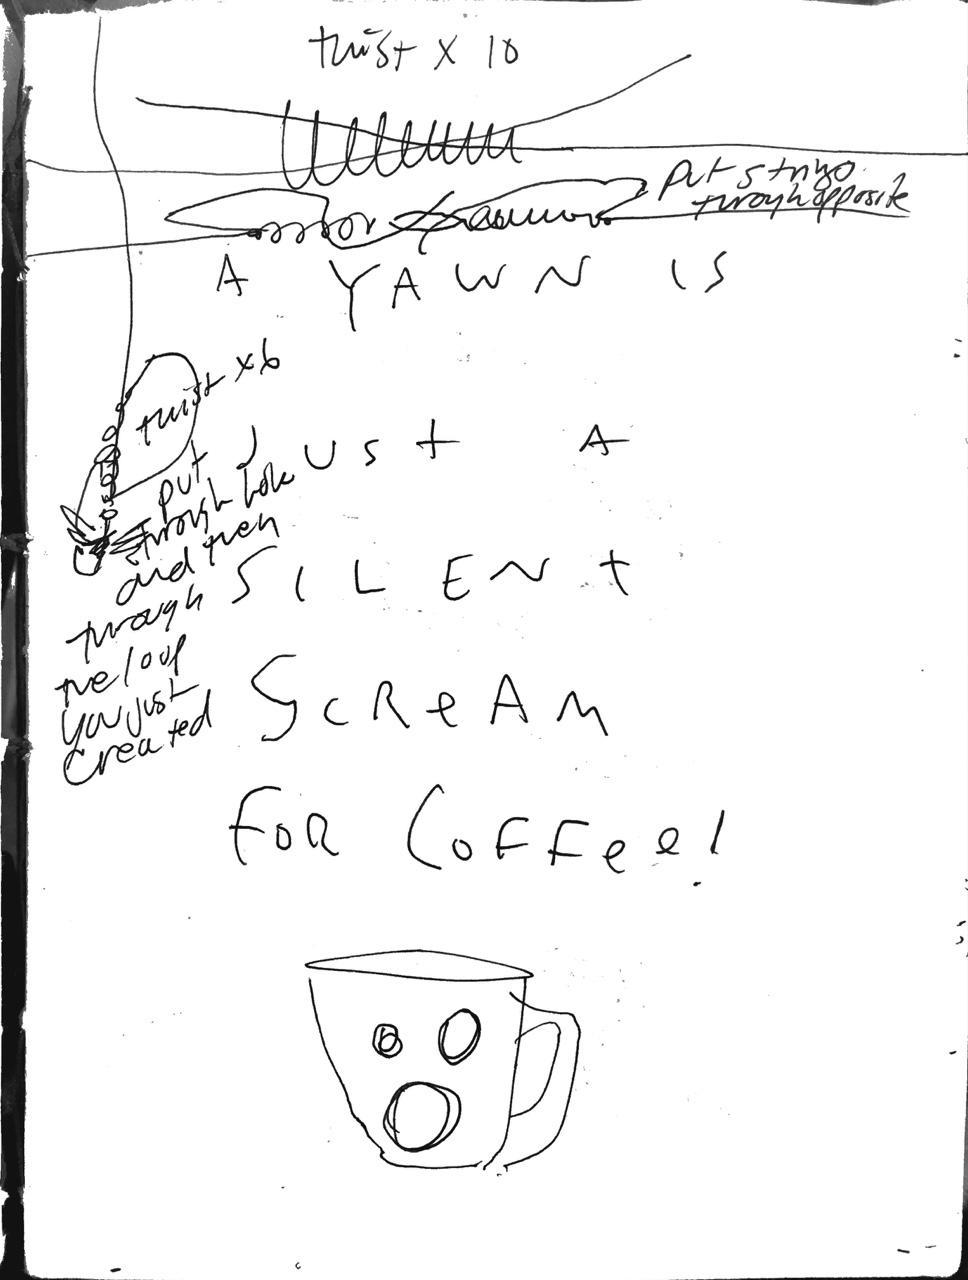 twist x 10
put strings
through opposite
A YAWN IS
twist x6
JUST A
put
through hole
and then
through
the loop
you just
created
SILENT
SCReAM
FOR COFFee!